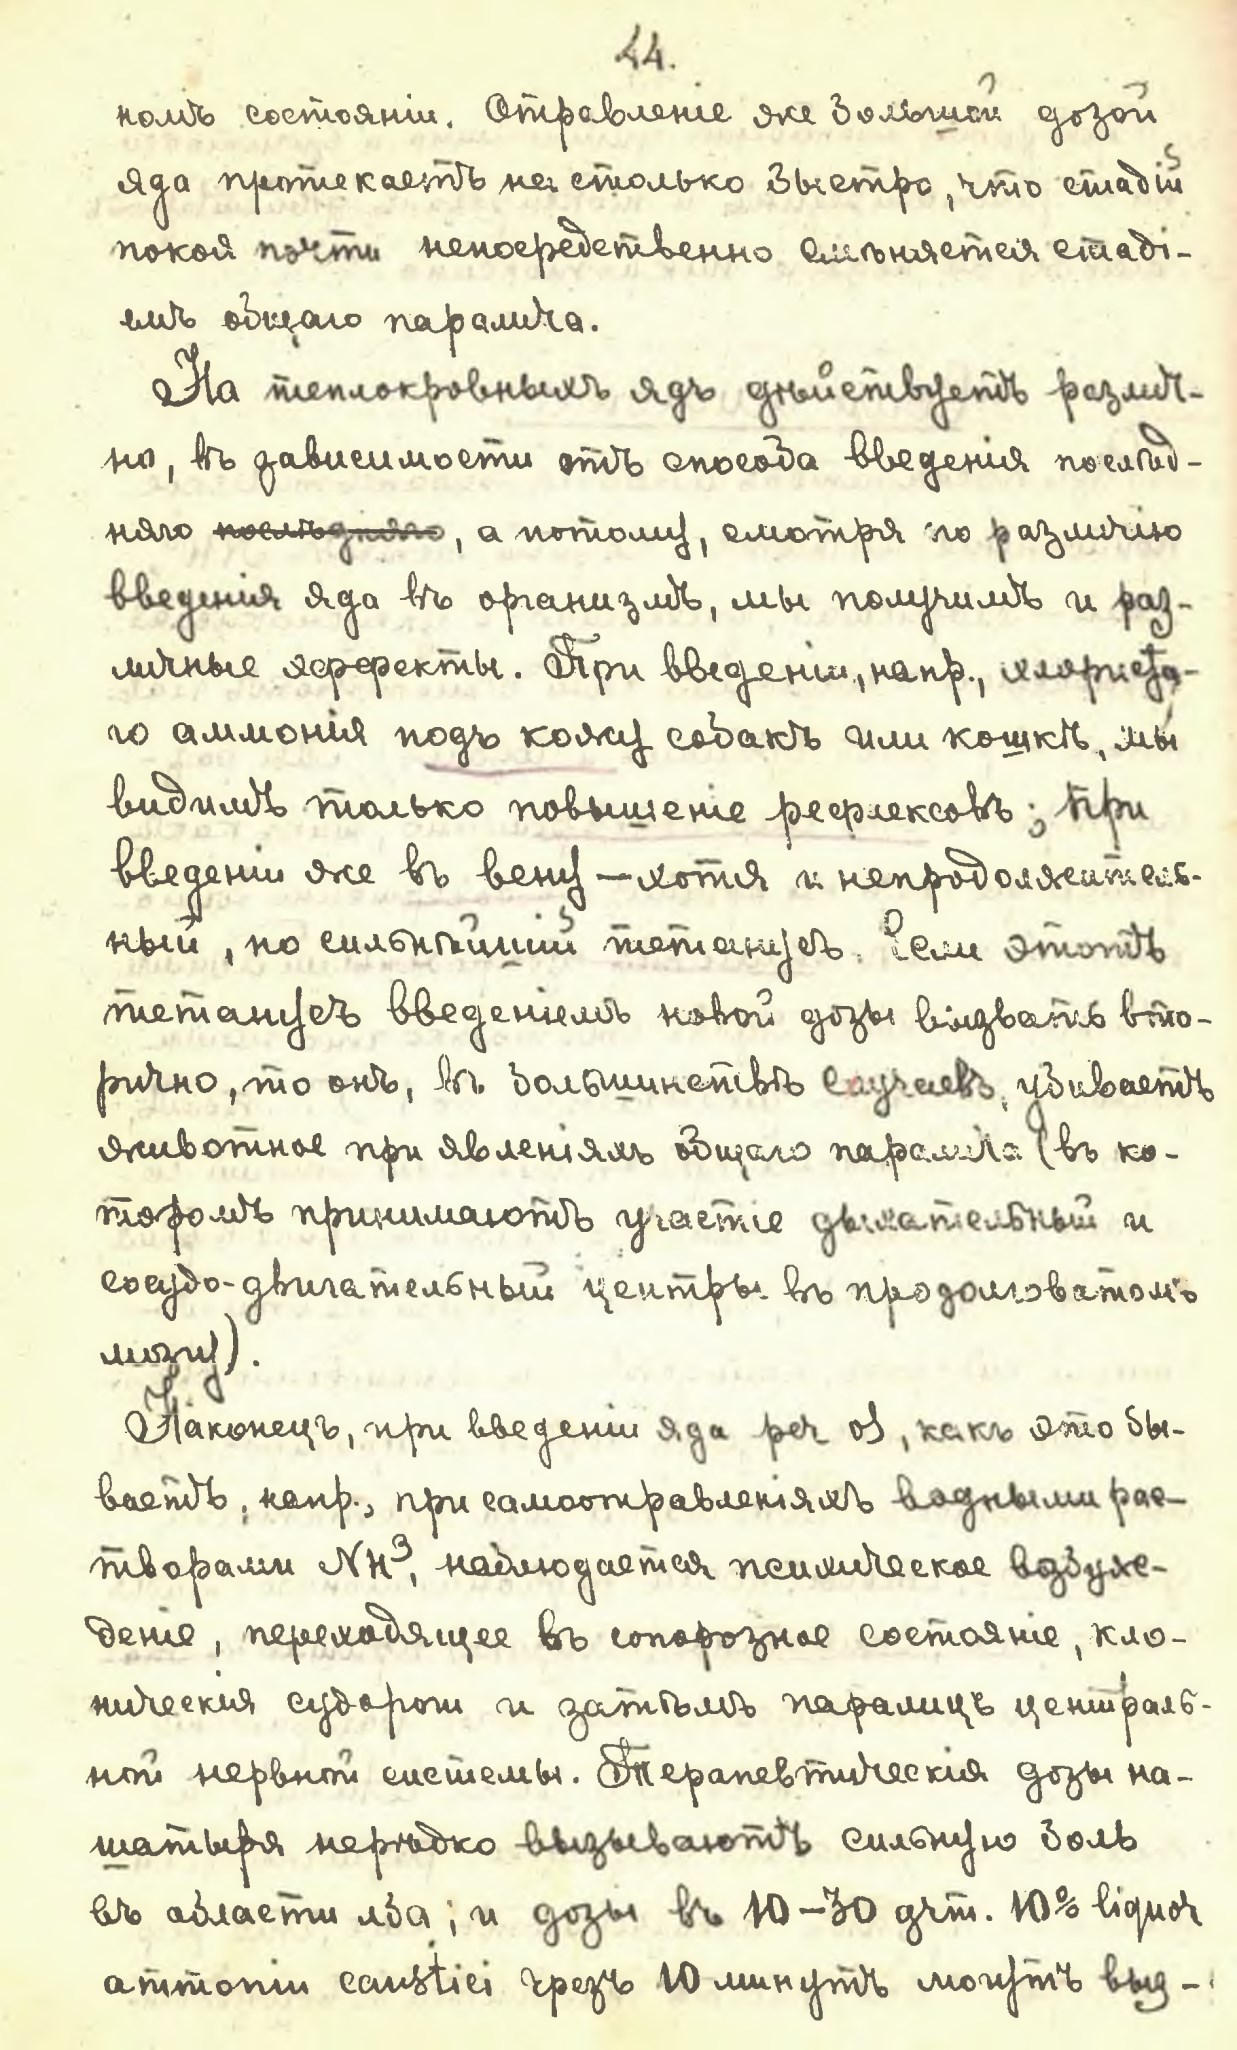 44.
номъ состоянiи. Отравленiе же большой дозой
яда протекаетъ на столько быстро, что стадiй
покоя почти непосредственно смѣняется стадi-
емъ общаго паралича.
На теплокровныхъ ядъ дѣйствуетъ различ-
но, въ зависимости отъ способа введенiя послѣд-
няго послѣдняго, а потому, смотря по различiю
введенiя яда въ организмъ, мы получимъ и раз-
личные эффекты. При введенiи, напр., хлориста-
го аммонiя подъ кожу собакѣ или кошкѣ, мы
видимъ только повышенiе рефлексовъ; при
введенiи же въ вену — хотя и непродолжитель-
ный, но сильнѣйшiй тетанусъ. Если этотъ
тетанусъ введенiемъ новой дозы вызвать вто-
рично, то онъ, въ большинствѣ случаевъ, убиваетъ
животное при явленiяхъ общаго паралича (въ ко-
торомъ принимаютъ участiе дыхательный и
сосудо-двигательный центры въ продолговатомъ
мозгу).
Наконецъ, при введенiи яда per os, какъ это бы-
ваетъ, напр., при самоотравленiяхъ водными рас-
творами NH³, наблюдается психическое возбуж-
денiе, переходящее въ сопорозное состоянiе, кло-
ническiя судороги и затѣмъ параличъ централь-
ной нервной системы. Терапевтическiя дозы на-
шатыря нерѣдко вызываютъ сильную боль
въ области лба; и дозы въ 10–30 gtt. 10% liquor
ammonii caustici чрезъ 10 минутъ могутъ выз-